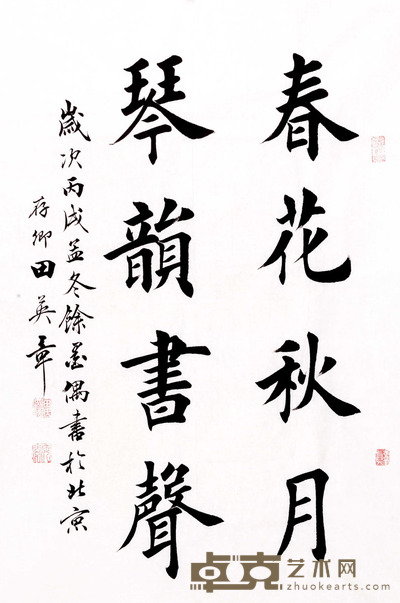 春花秋月
琴韻書聲
歲次丙戌孟冬餘墨偶書於北京
存卿田英章
卓克艺术网
zhuokearts.com